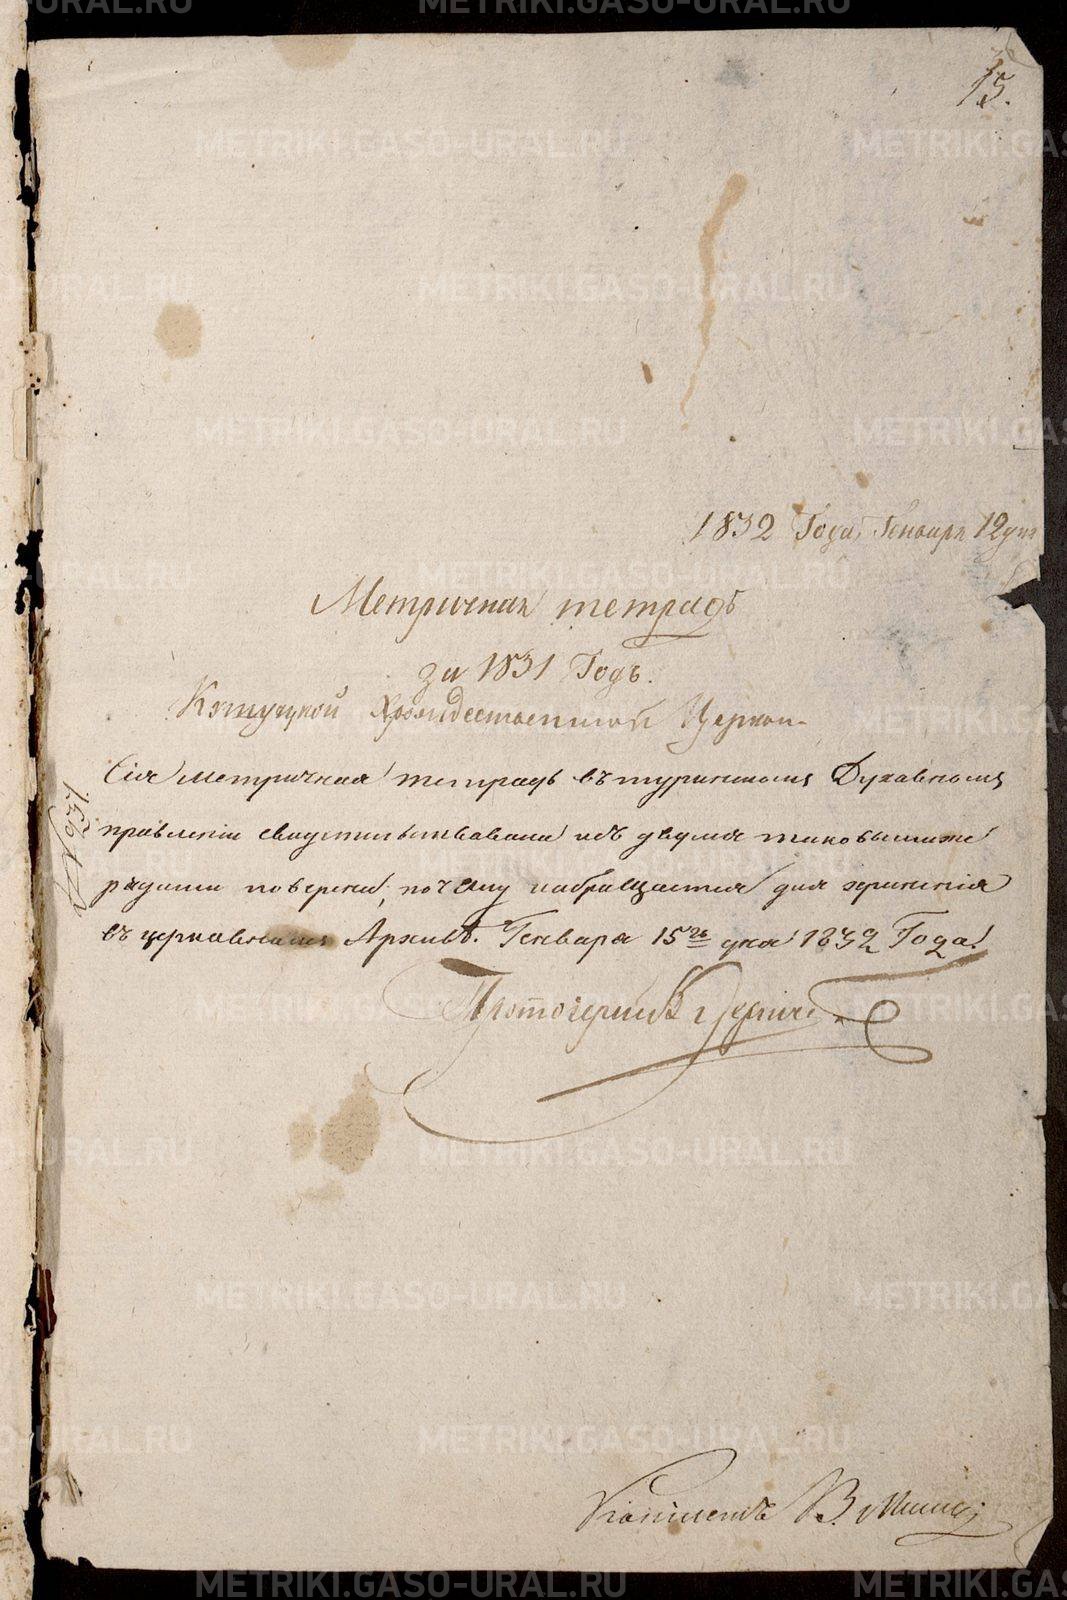 15.
1832 Года, Генваря 12 дня
Метричная тетрадь
за 1831 Годъ.
Христорождественной Церкви
Сія метричная тетрадь въ туринскомъ Духавномъ
правленіи свидетельствавана и съ двумя таковыми же
рядами поверена, почему и абращается для хранения
въ церковномъ Архивѣ. Генваря 15го дня 1832 Года.
Протоіерей
№ 931.
METRIKI.GASO-URAL.RU